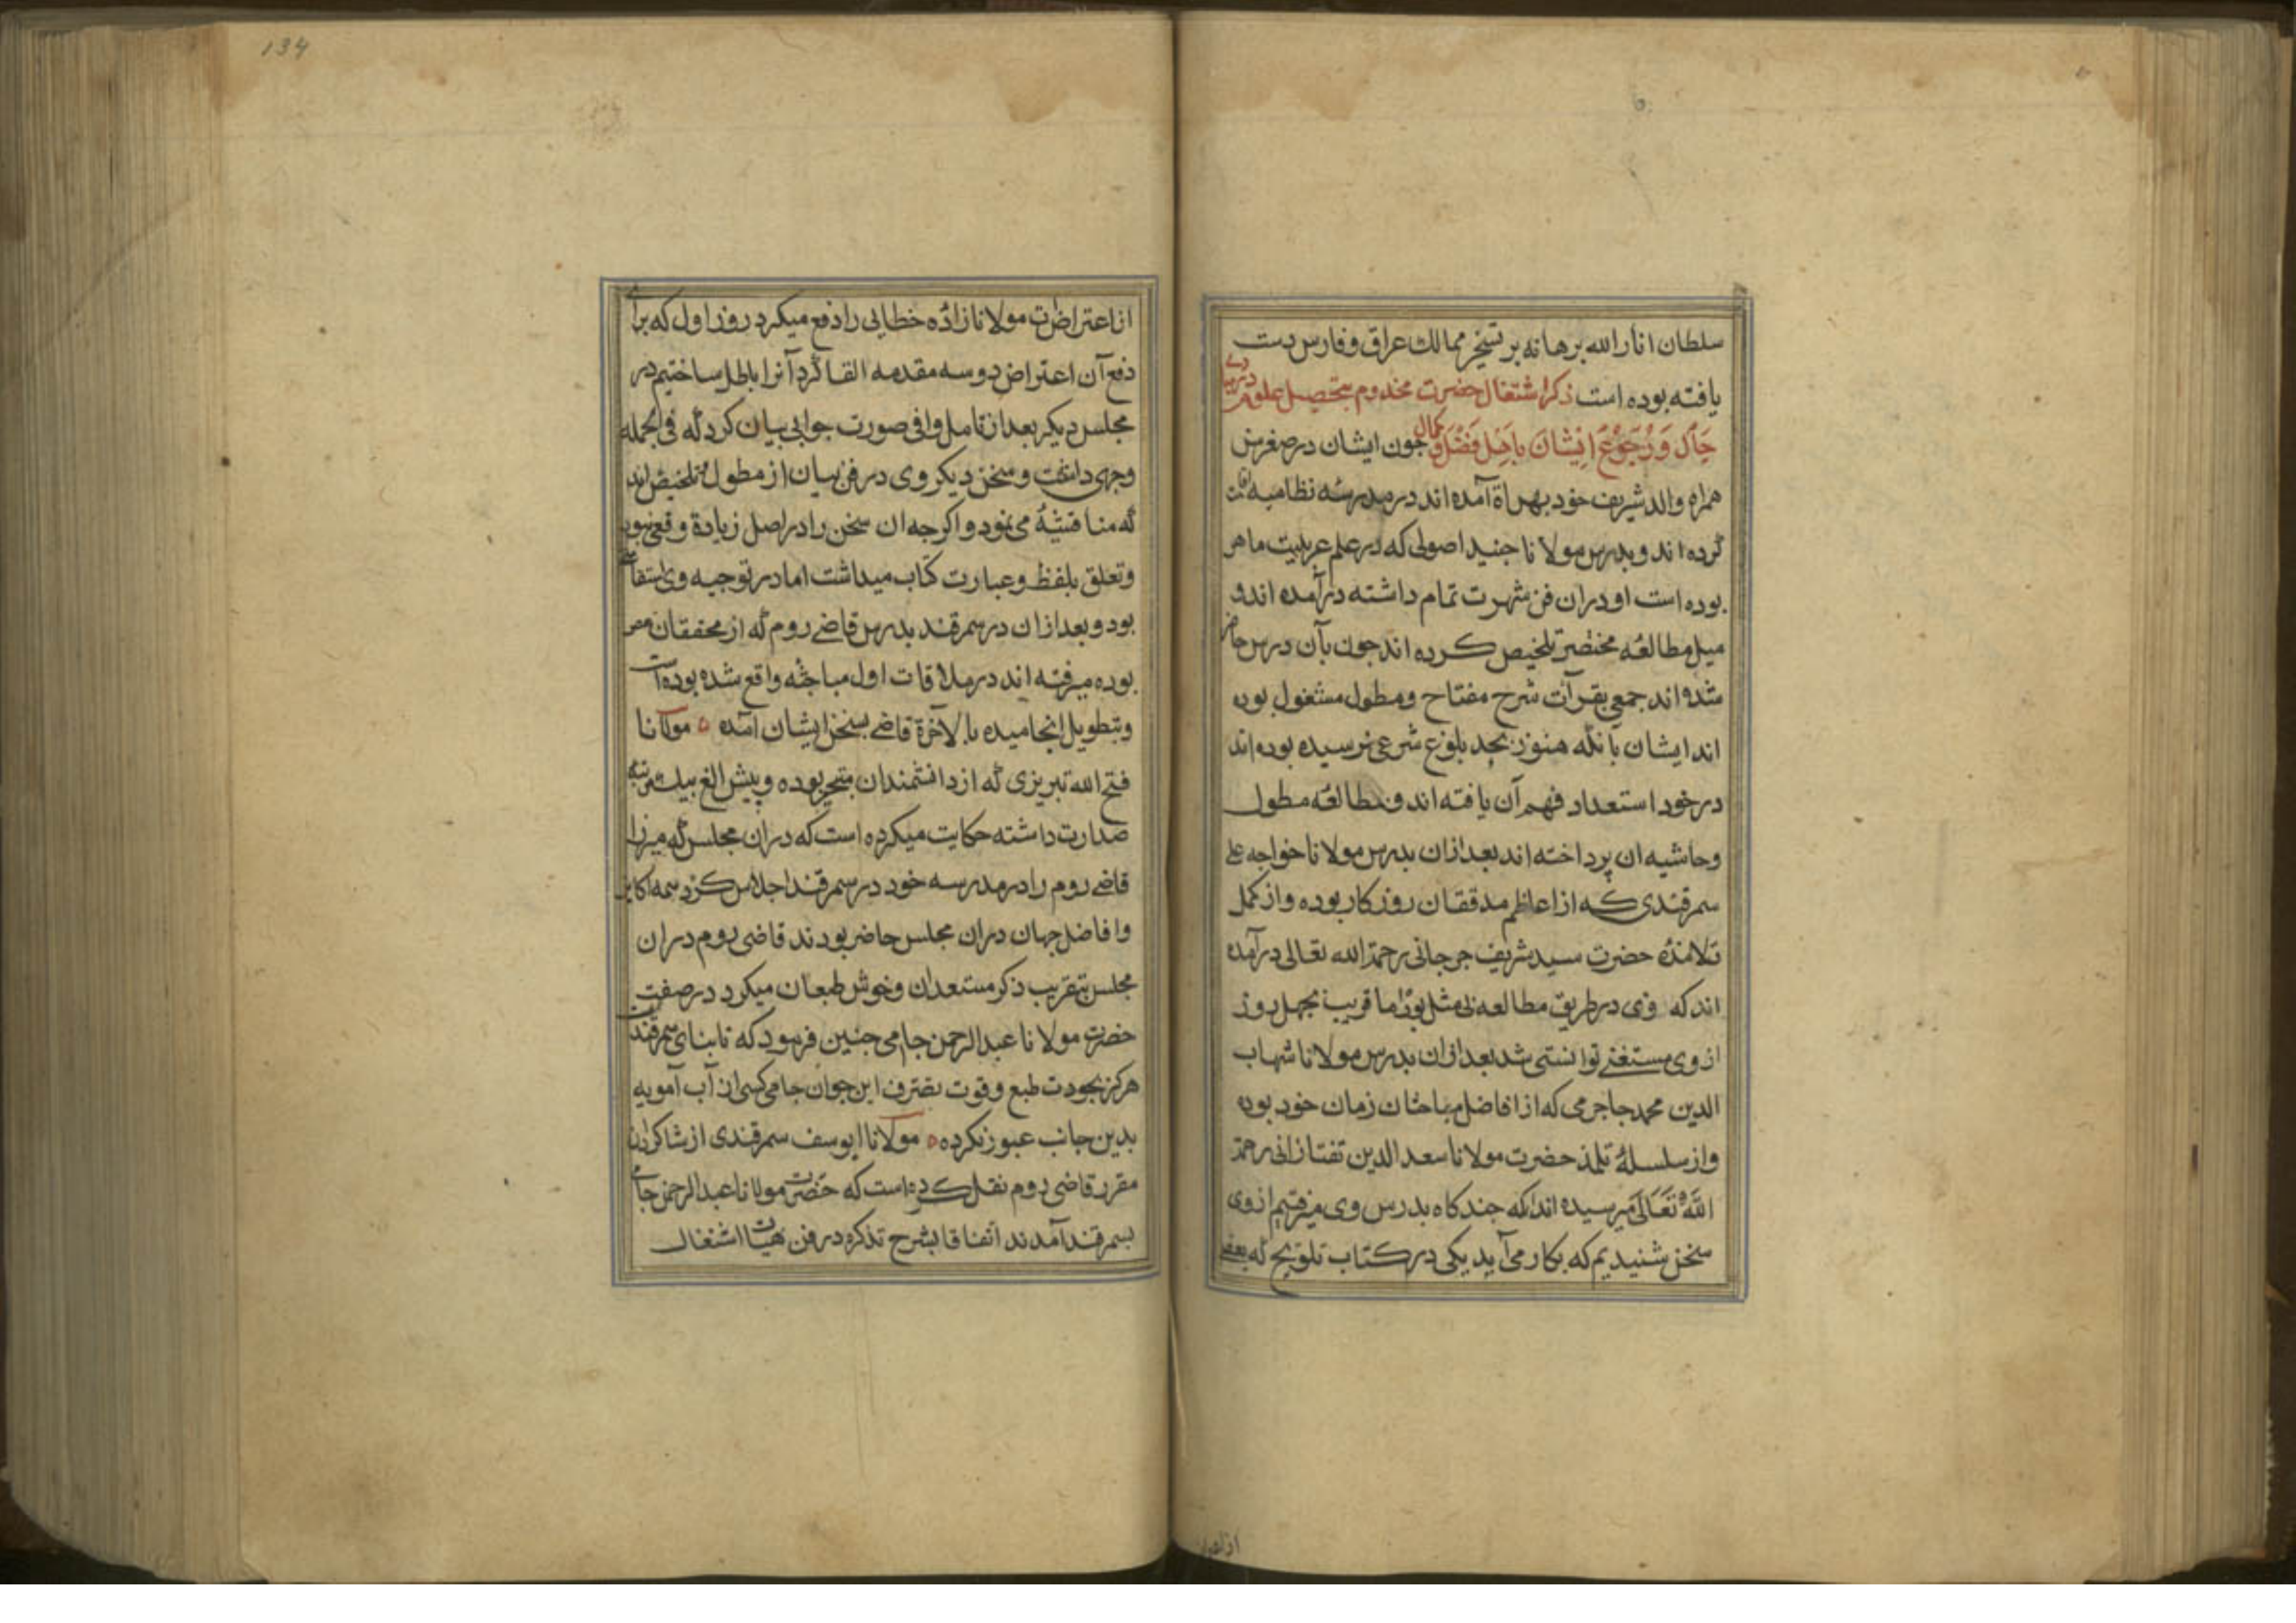 سلطان انار الله برهانه بر تسخیر ممالک عراق و فارس دست
یافته بوده است ذکر اشتغال حضرت مخدوم بتحصیل علوم در مبادی
حال و رجوع ایشان باهل فضل و کمال جون ایشان در صغر سن
همراه والد شریف خود بهراة آمده اند در مدرسه نظامیه اقامت
کرده اند و بدرس مولانا جنید اصولی که در علم عربیت ماهر
بوده است او دران فن شهرت تمام داشته درآمده اند و
میل مطالعه مختصر تلخیص کرده اند جون بآن درس حاضر
شده اند جمعی بقرآئت شرح مفتاح و مطول مشغول بوده
اند ایشان بآنکه هنوز بحد بلوغ شرعی نرسیده بوده اند
در خود استعداد فهم آن یافته اند و بمطالعه مطول
و حاشیه ان پرداخته اند بعد ازان بدرس مولانا خواجه علی
سمرقندی که از اعاظم مدققان روزکار بوده و از کمل
تلامذه حضرت سید شریف جرجانی رحمة الله تعالی درآمده
اند که وی در طریق مطالعه بی مثل بود اما قریب بجهل روز
از وی مستغنی توانستی شد بعد ازان بدرس مولانا شهاب
الدین محمد جاجرمی که از افاضل مباحثان زمان خود بوده
و از سلسله تلمذ حضرت مولانا سعد الدین تفتازانی رحمة
الله تعالی میرسیده اند که جند کاه بدرس وی میرفتیم از وی
سخن شنیدیم که بکار می آید یکی در کتاب تلویح که بعضی
از اعتراض
134
از اعتراضات مولانا زاده خطایی را دفع میکرد روز اول که برای
دفع آن اعتراض دو سه مقدمه القا کرد آنرا باطل ساختیم در
مجلس دیکر بعد از تامل وافی صورت جوابی بیان کرد که فی الجمله
وجهی داشت و سخن دیکر وی در فن بیان از مطول تلخیص اند
که مناقشة می نمود و اکر جه ان سخن را در اصل زیادة وقعی نبود
و تعلق بلفظ و عبارت کتاب میداشت اما در توجیه وی استقامتی
بود و بعد ازان در سمرقند بدرس قاضی روم که از محققان عصر
بوده میرفته اند در ملاقات اول مباحثه واقع شده بوده است
و بتطویل انجامیده بالآخرة قاضی بسخن ایشان آمده ه مولانا
فتح الله تبریزی که از دانشمندان متبحر بوده و پیش الغ بیک مرتبه
صدارت داشته حکایت میکرده است که دران مجلس که میرزا
قاضی روم را در مدرسه خود در سمرقند اجلاس کرد همه اکابر
و افاضل جهان دران مجلس حاضر بودند قاضی روم دران
مجلس بتقریب ذکر مستعدان و خوش طبعان میکرد در صفت
حضرت مولانا عبدالرحمن جامی جنین فرمود که تا بنای سمرقند است
هرکز بجودت طبع و قوت تصرف این جوان جامی کسی از آب آمویه
بدین جانب عبور نکرده ه مولانا ابو یوسف سمرقندی از شاکردان
مقرر قاضی روم نقل کرده است که حضرت مولانا عبدالرحمن جامی
بسمرقند آمدند اتفاقا بشرح تذکره در فن هیات اشتغال